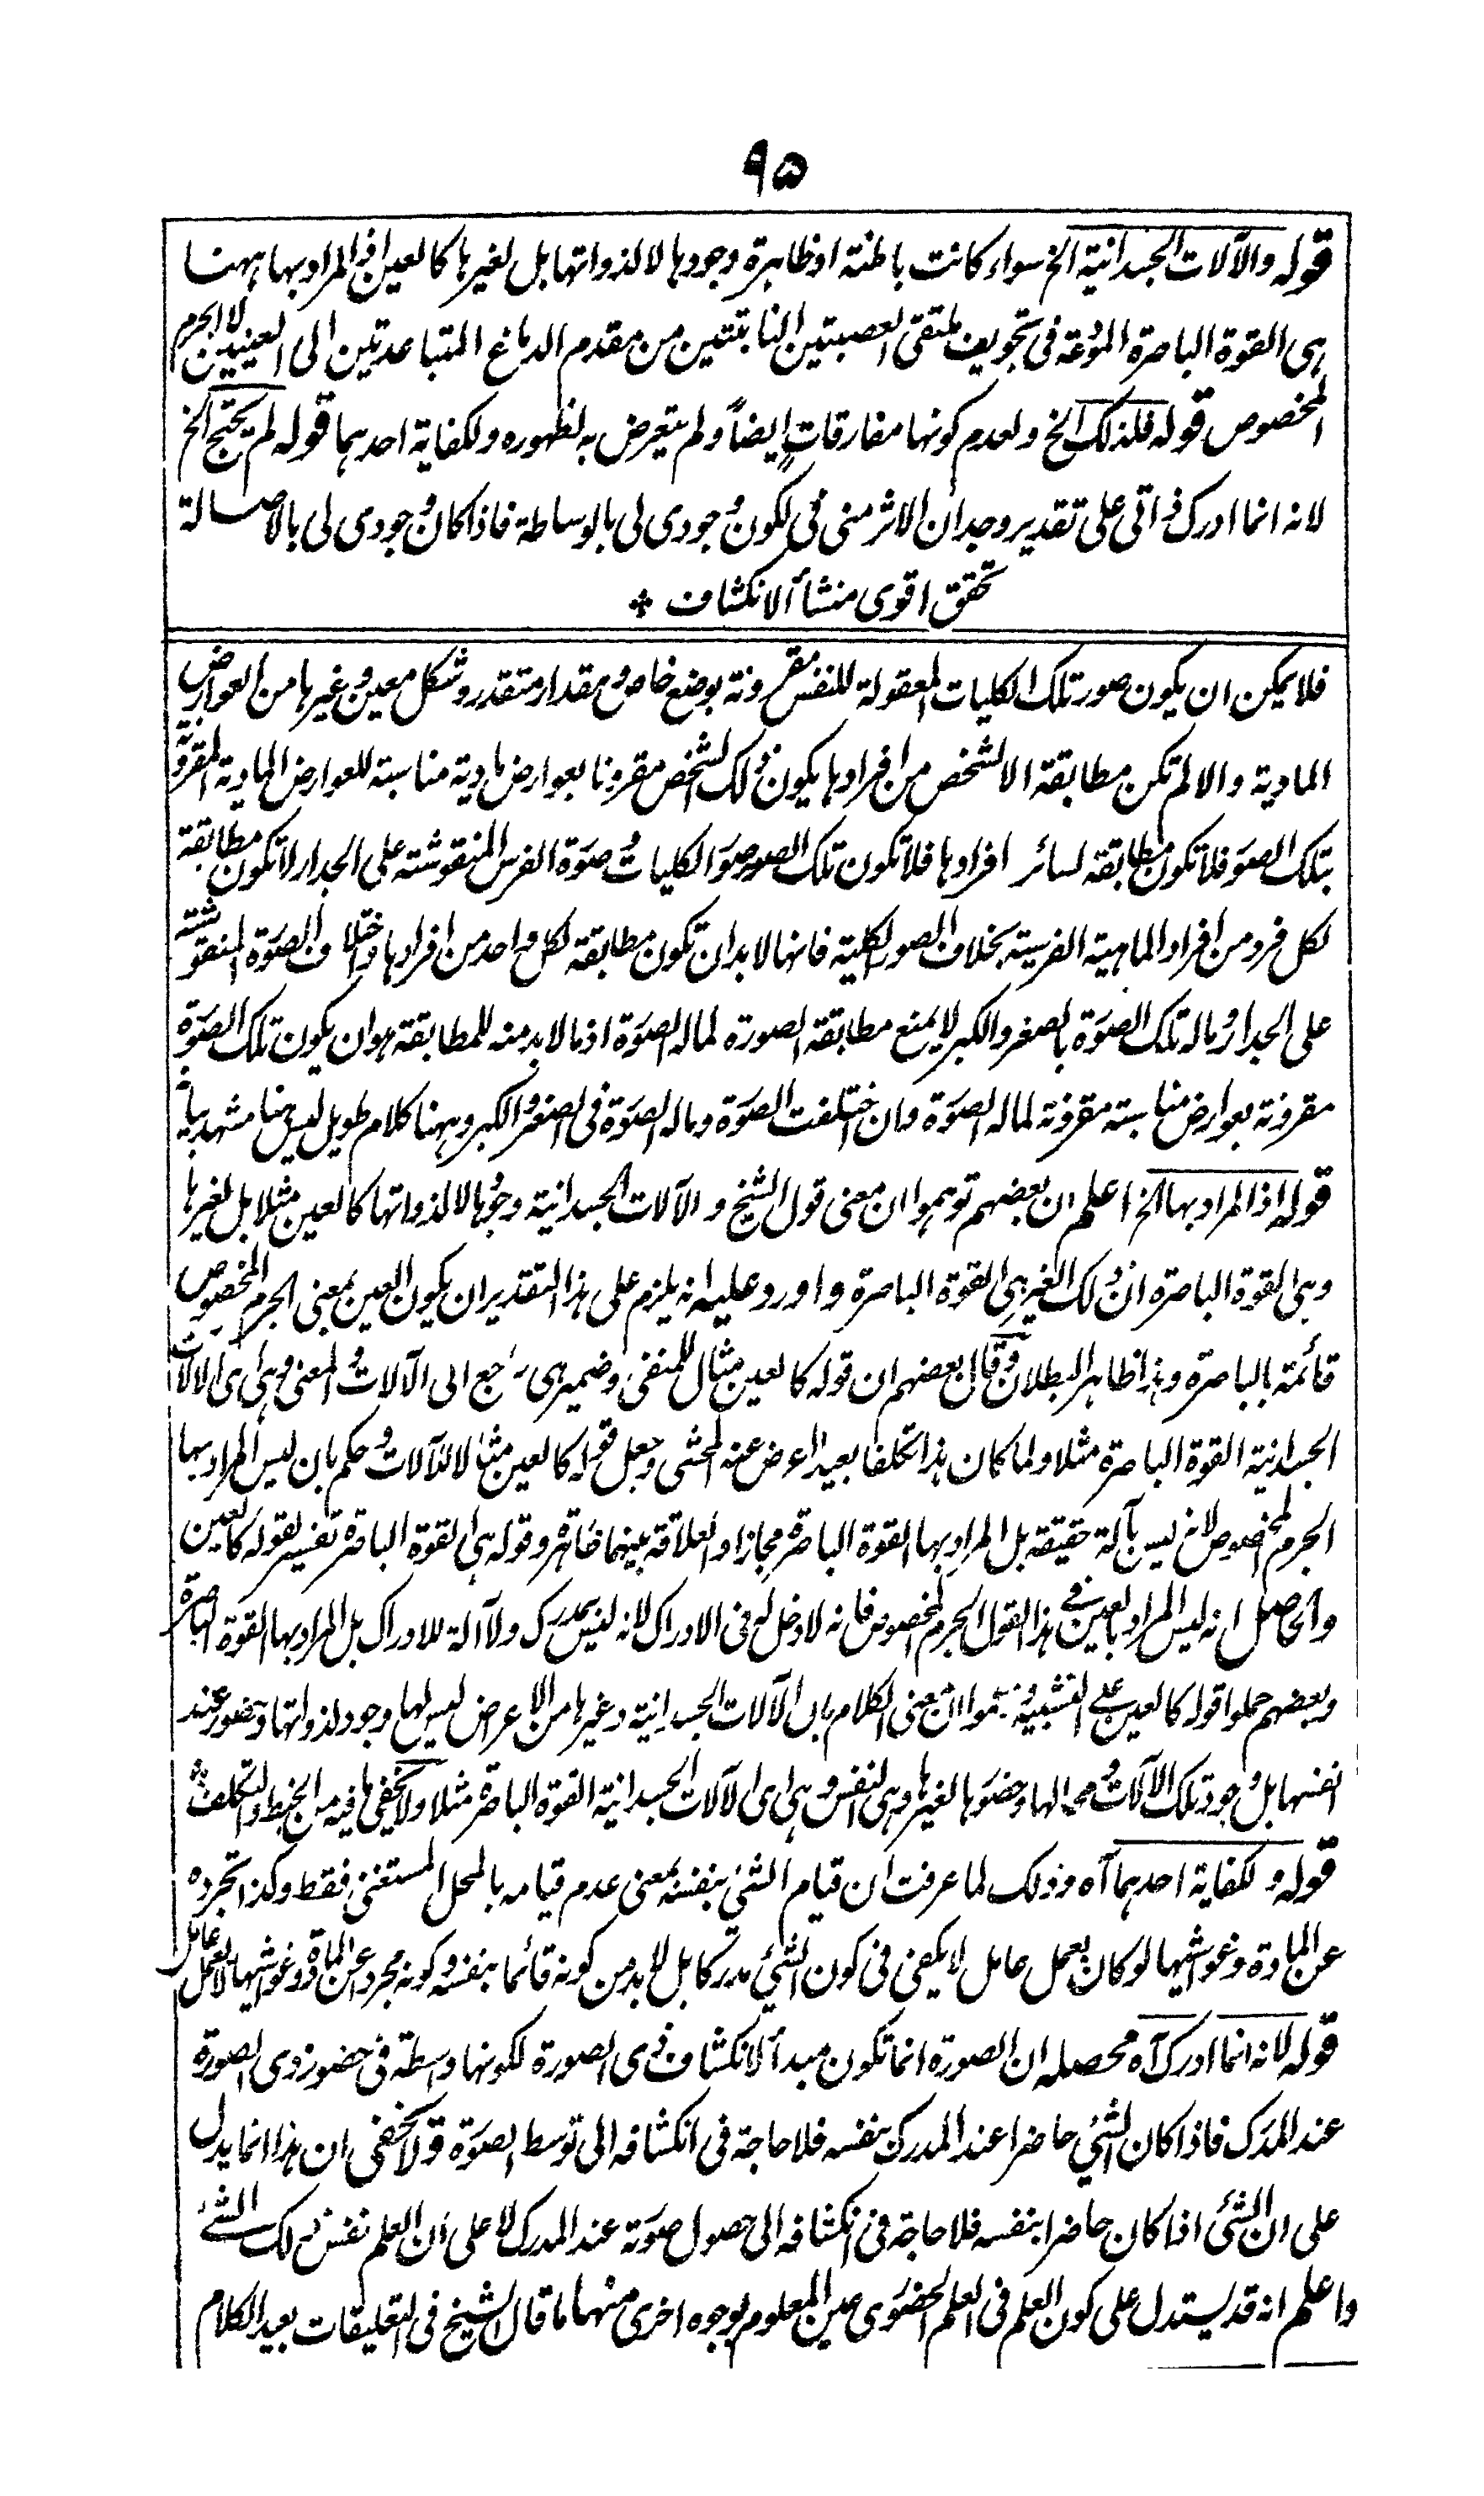 ٩٥
قوله والآلات الجسدانية الخ سواء كانت باطنة او ظاهرة وجودها لا لذواتها بل لغيرها كالعين اذ المراد بها ههنا
هى القوة الباصرة المودعة فى تجويف ملتقى العصبتين النابتتين من مقدم الدماغ المتباعدتين الى العينين لا الجرم
المخصوص قوله فلذلك الخ ولعدم كونها مفارقات ايضاً ولم يتعرض به لظهوره ولكفاية احدهما قوله لم يحتج الخ
لانه انما ادرك ذاتى على تقدير وجدان الاثر منى فى لكون وجودى لى بالوساطة فاذا كان وجودى لى بالاصالة
تحقق اقوى منشأ الانكشاف
فلا يمكن ان يكون صور تلك الكليات المعقولة للنفس مقرونة بوضع خاص ومقدار متقدر وشكل معين وغيرها من العوارض
المادية والا لم تكن مطابقة الا لشخص من افرادها يكون ذلك الشخص مقرونا بعوارض مادية مناسبة للعوارض المادية المقرونة
بتلك الصور فلا تكون مطابقة لسائر افرادها فلا تكون تلك الصور صور الكليات وصورة الفرس المنقوشة على الجدار لا تكون مطابقة
لكل فرد من افراد الماهية الفرسية بخلاف الصور الكلية فانها لا بد ان تكون مطابقة لكل واحد من افرادها واختلاف الصورة المنقوشة
على الجدار وماله تلك الصورة بالصغر والكبر لا يمنع مطابقة الصورة لماله الصورة اذ ما لا بد منه للمطابقة هو ان يكون تلك الصورة
مقرونة بعوارض مناسبة مقرونة لماله الصورة وان اختلفت الصورة وماله الصورة فى الصغر والكبر وههنا كلام طويل ليس هنا مشهد بيانه
قوله اذ المراد بها الخ اعلم ان بعضهم توهموا ان معنى قول الشيخ والآلات الجسدانية وجودها لا لذواتها كالعين مثلا بل لغيرها
وهى القوة الباصرة ان ذلك الغير هى القوة الباصرة واورد عليه انه يلزم على هذا التقدير ان يكون العين بمعنى الجرم المخصوص
قائمة بالباصرة وهذا ظاهر البطلان وقال بعضهم ان قوله كالعين مثال للمنفى وضمير هى راجع الى الآلات والمعنى وهى اى الآلات
الجسدانية القوة الباصرة مثلا ولما كان هذا تكلفا بعيدا اعرض عنه المحشى وجعل قوله كالعين مثالا للآلات وحكم بان ليس المراد بها
الجرم المخصوص لانه ليس بآلة حقيقة بل المراد بها القوة الباصرة مجازا والعلاقة بينهما ظاهرة وقوله هى القوة الباصرة تفسير لقوله كالعين
والحاصل انه ليس المراد بالعين فى هذا القول الجرم المخصوص فانه لا دخل له فى الادراك لانه ليس بمدرك ولا آلة للادراك بل المراد بها القوة الباصرة
وبعضهم حملوا قوله كالعين على التشبيه وزعموا ان معنى الكلام بان الآلات الجسدانية وغيرها من الاعراض ليس لها وجود لذواتها وحضور عند
انفسها بل وجود تلك الآلات ومحالها وحضورها لغيرها وهى النفس وهى اى الآلات الجسدانية القوة الباصرة مثلا ولا يخفى ما فيه من الخبط والتكلف
قوله ولكفاية احدهما آه وذلك لما عرفت ان قيام الشئ بنفسه بمعنى عدم قيامه بالمحل المستغنى فقط وكذا تجرده
عن المادة وغواشيها لو كان بعمل عامل لا يكفى فى كون الشئ مدركا بل لا بد من كونه قائما بنفسه وكونه مجردا عن المادة وغواشيها لا بعمل عامل
قوله لانه انما ادرك آه محصله ان الصورة انما تكون مبدأ لانكشاف ذى الصورة لكونها واسطة فى حضور ذى الصورة
عند المدرك فاذا كان الشئ حاضرا عند المدرك بنفسه فلا حاجة فى انكشافه الى توسط الصورة ولا يخفى ان هذا انما يدل
على ان الشئ اذا كان حاضرا بنفسه فلا حاجة فى انكشافه الى حصول صورة عند المدرك لا على ان العلم نفس ذلك الشئ
واعلم انه قد يستدل على كون العلم فى العلم الحضورى عين المعلوم بوجوه اخرى منها ما قال الشيخ فى التعليقات بعيد الكلام